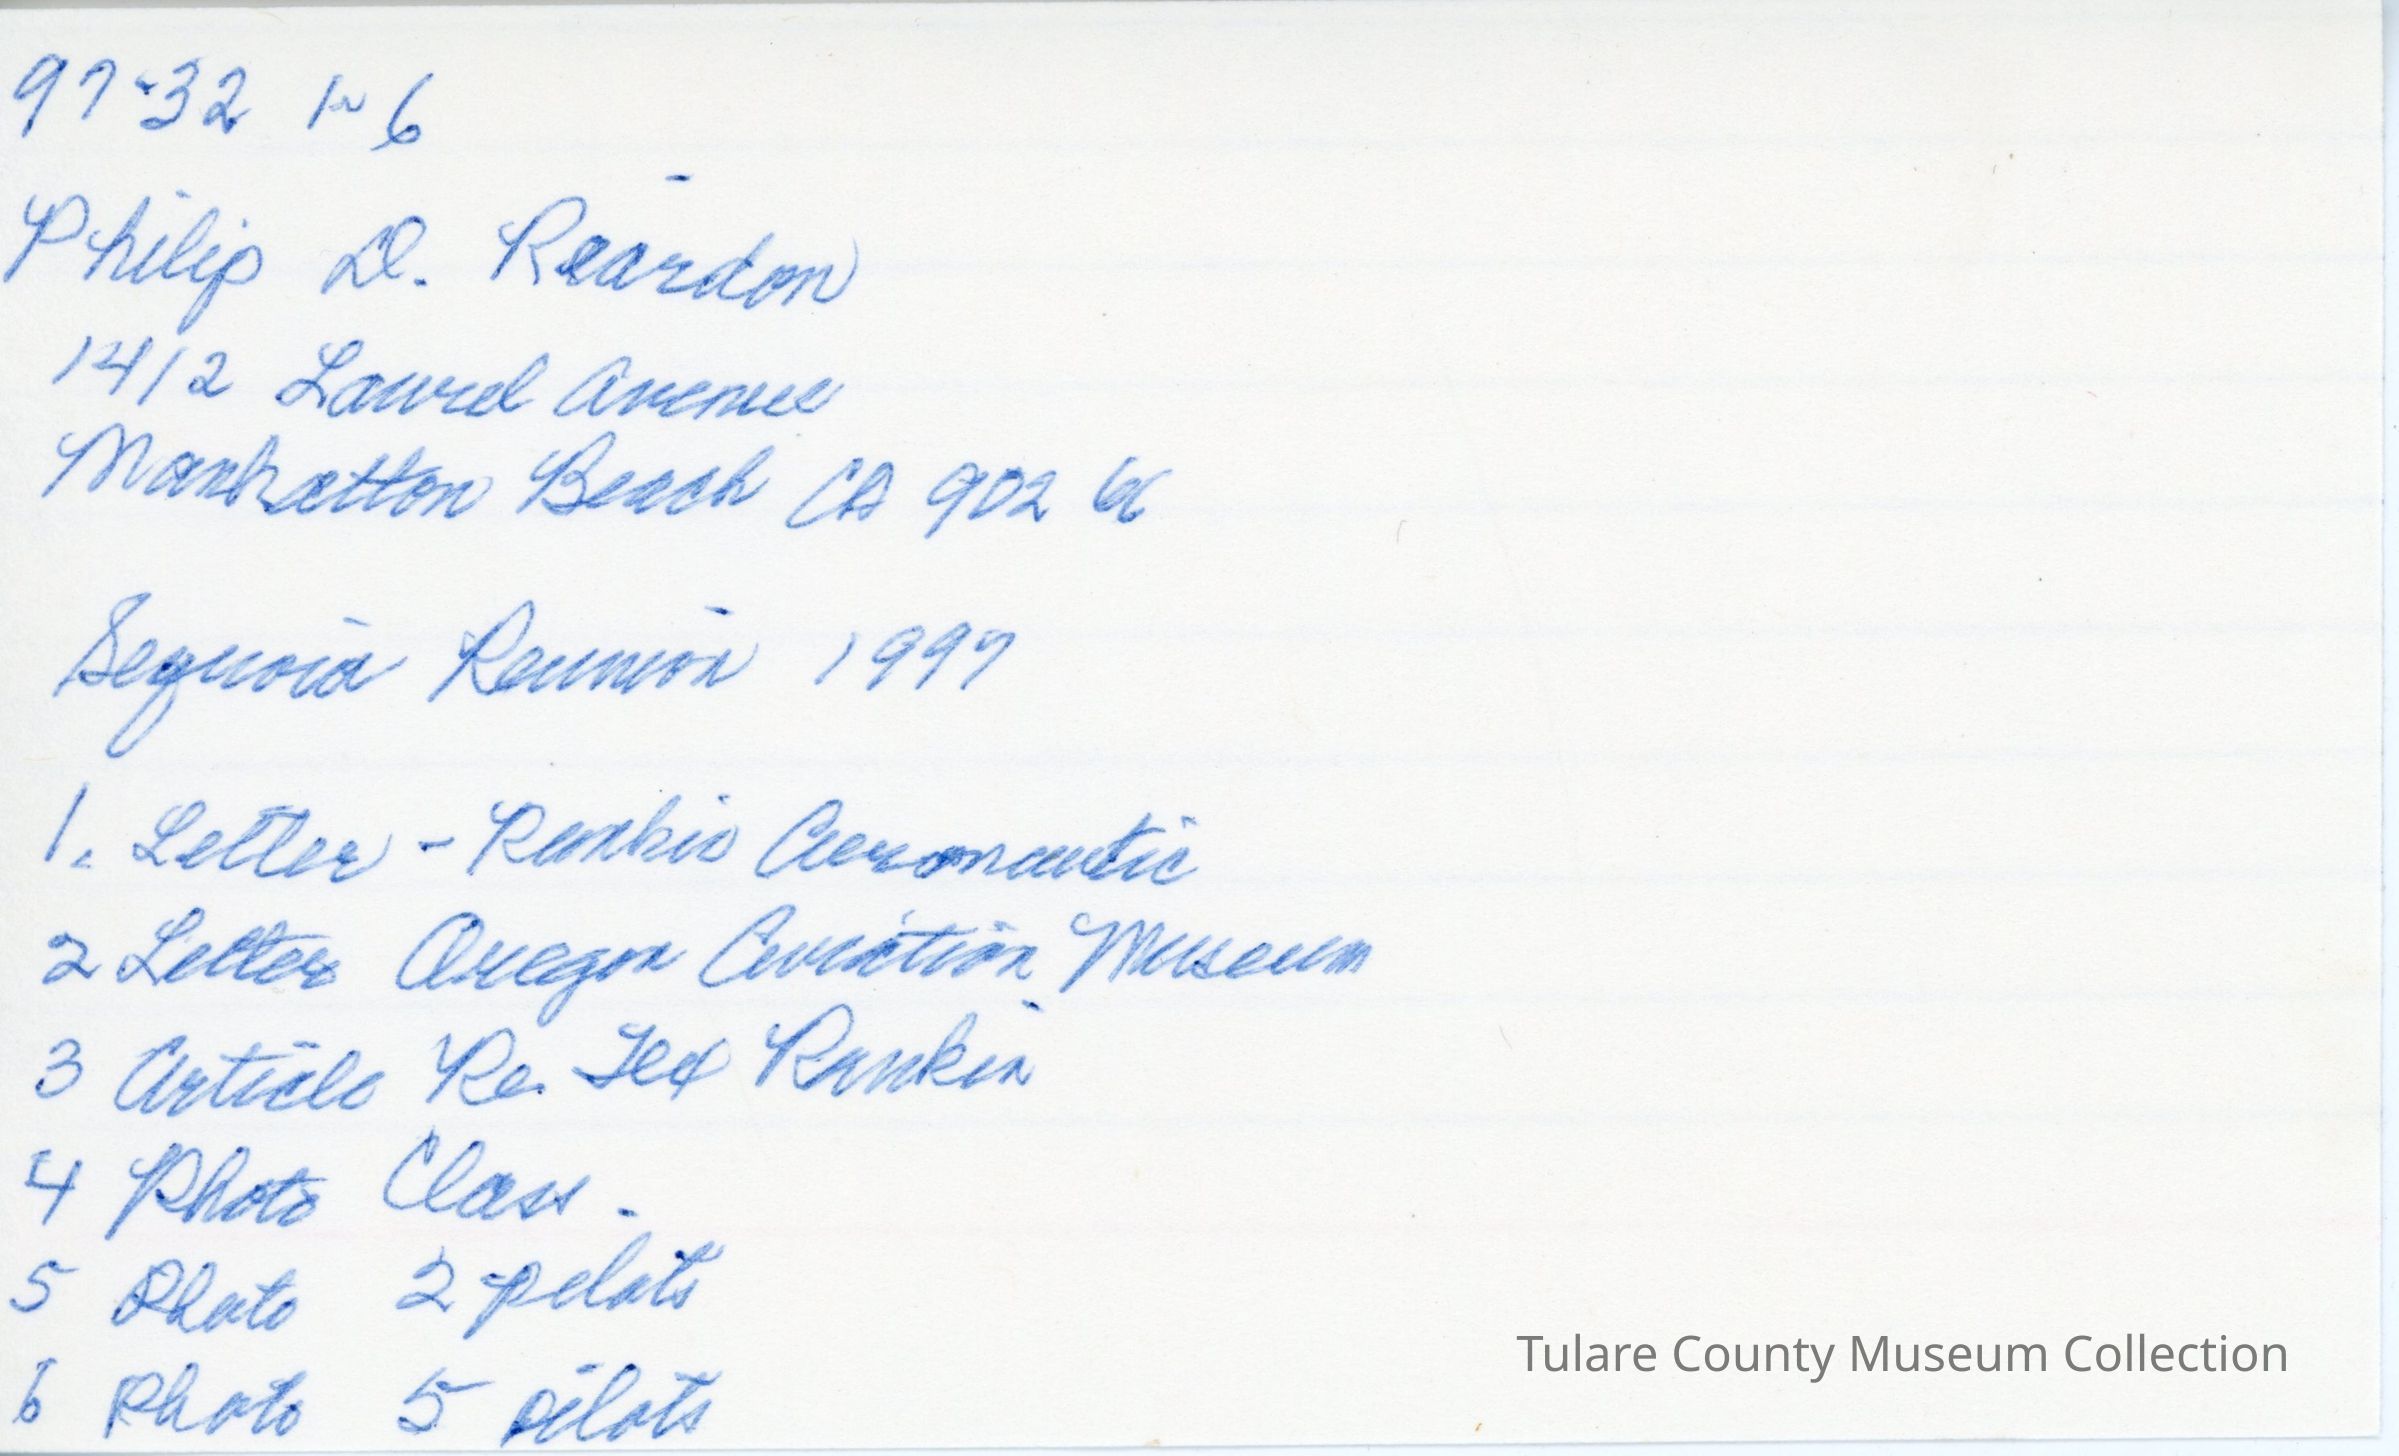 97-32 1-6
Philip D. Reardon
1412 Laurel Avenue
Manhattan Beach CA 90266
Sequoia Reunion 1997
1. Letter - Rankin Aeronautic
2 Letter Oregon Aviation Museum
3 Article Re. Tex Rankin
4 Photo Class.
5 Photo 2 pilots
6 Photo 5 pilots
Tulare County Museum Collection